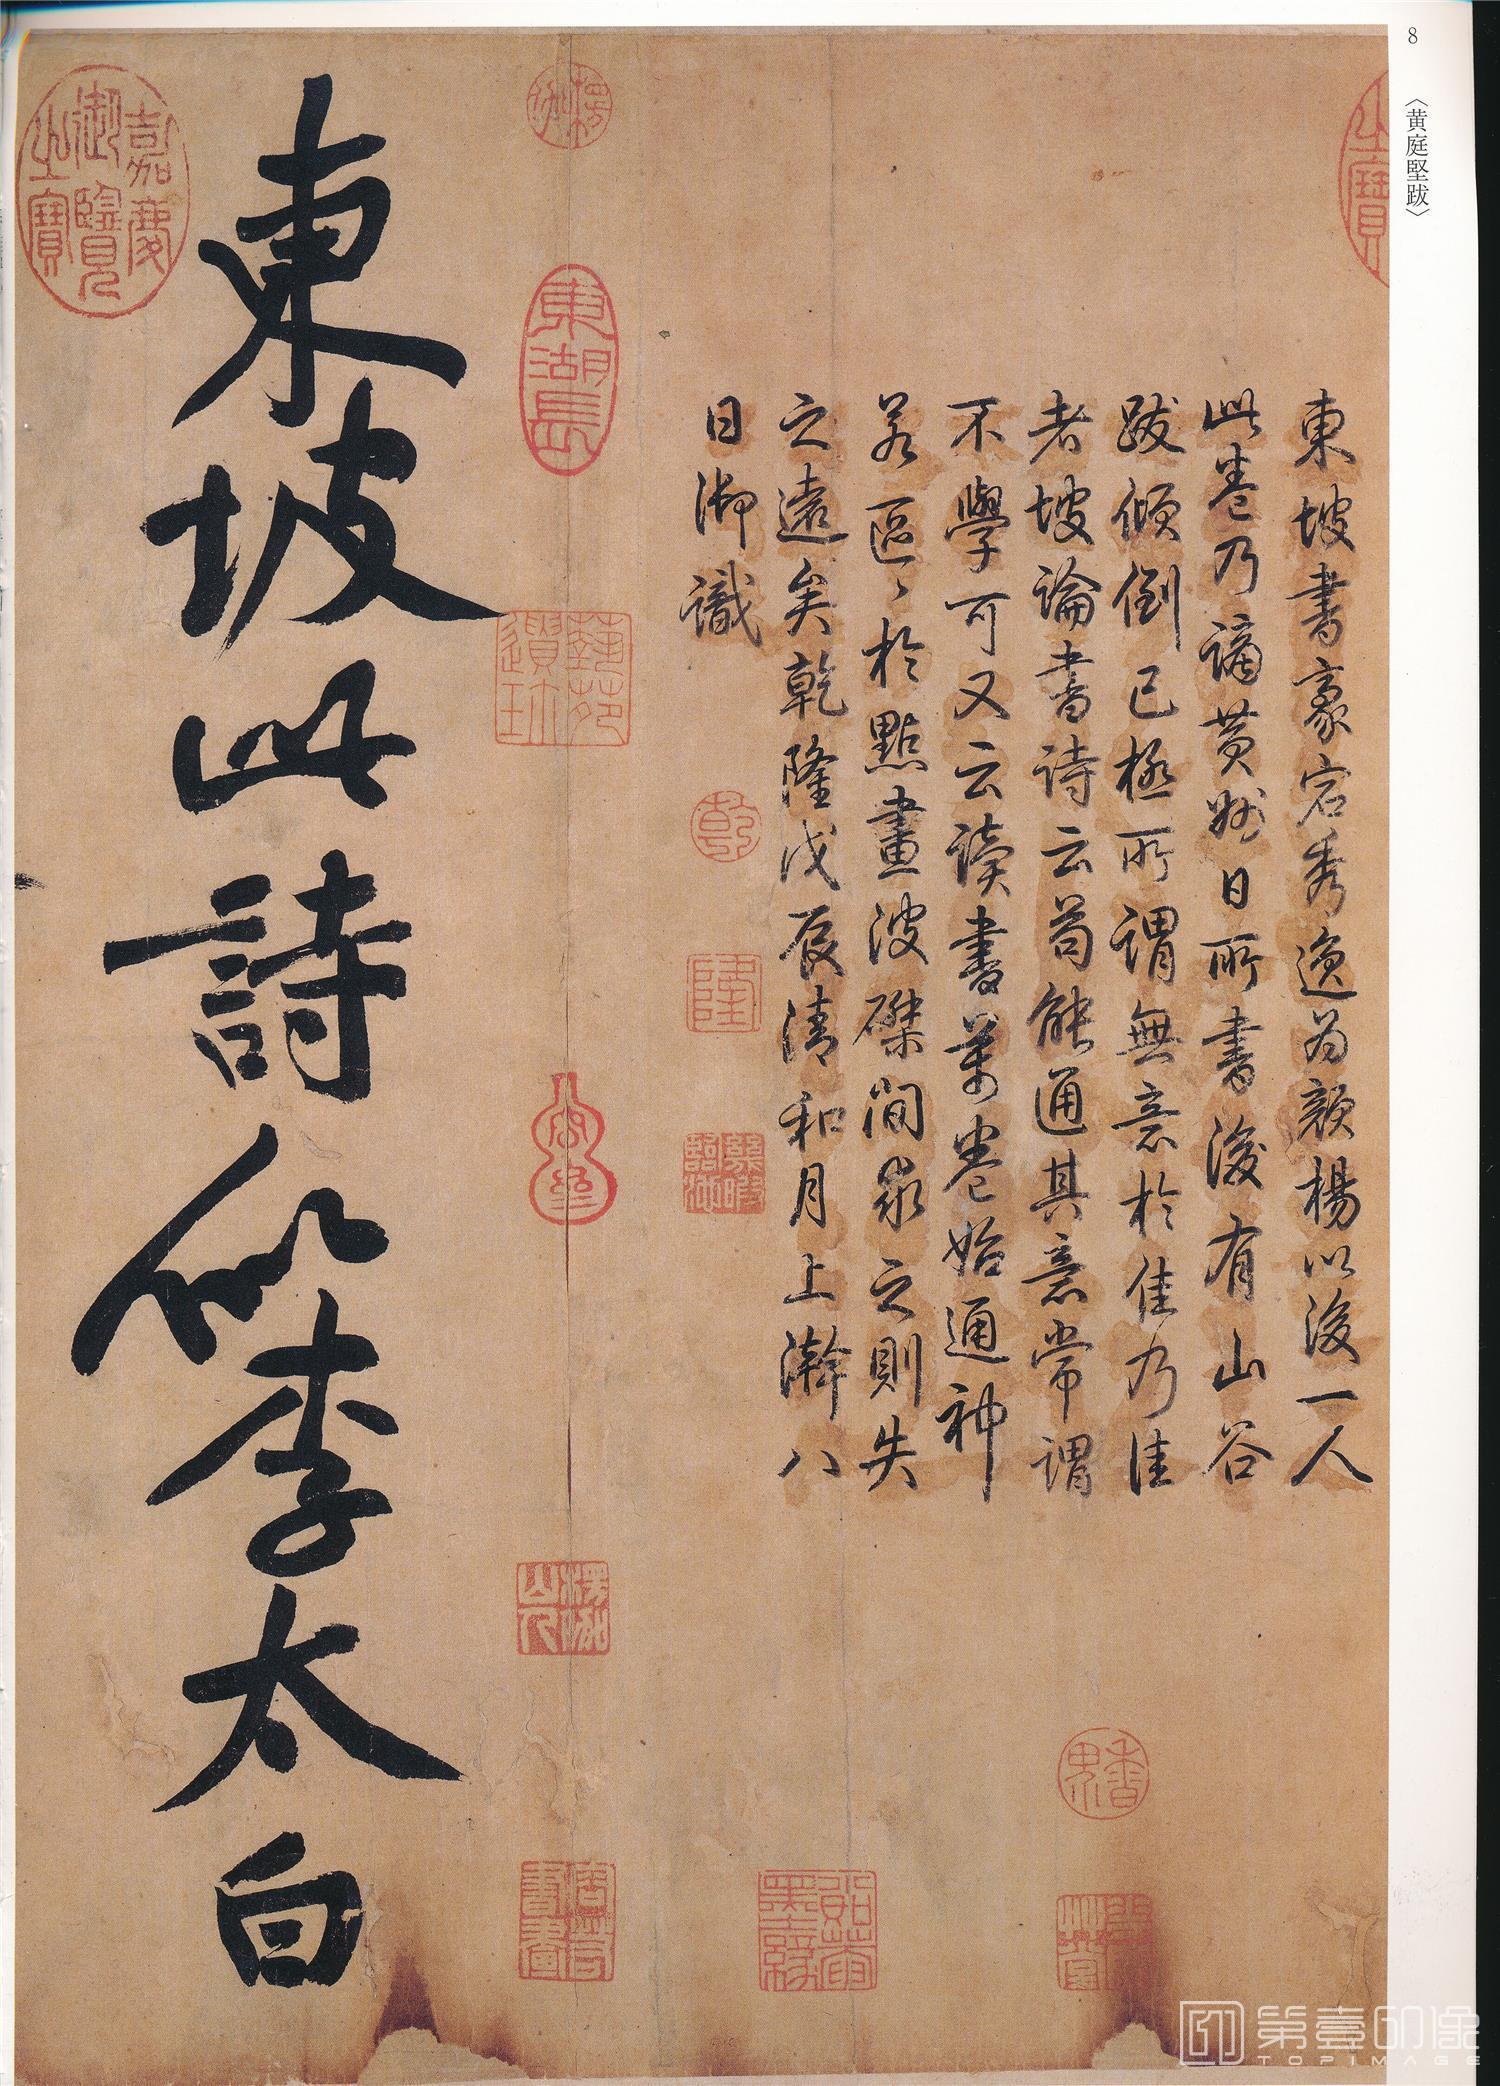 8
〈黄庭堅跋〉
東坡書豪宕秀逸為顏楊以後一人
此卷乃謫黃州日所書後有山谷
跋傾倒已極所謂無意於佳乃佳
者坡論書詩云苟能通其意常謂
不學可又云讀書萬卷始通神
若區〻於點畫波磔間求之則失
之遠矣乾隆戊辰清和月上澣八
日御識
乾
隆
東湖長
藝苑遺珍
嘉慶御覽之寶
之寶
東坡此詩似李太白
第壹印像
TOPIMAGE